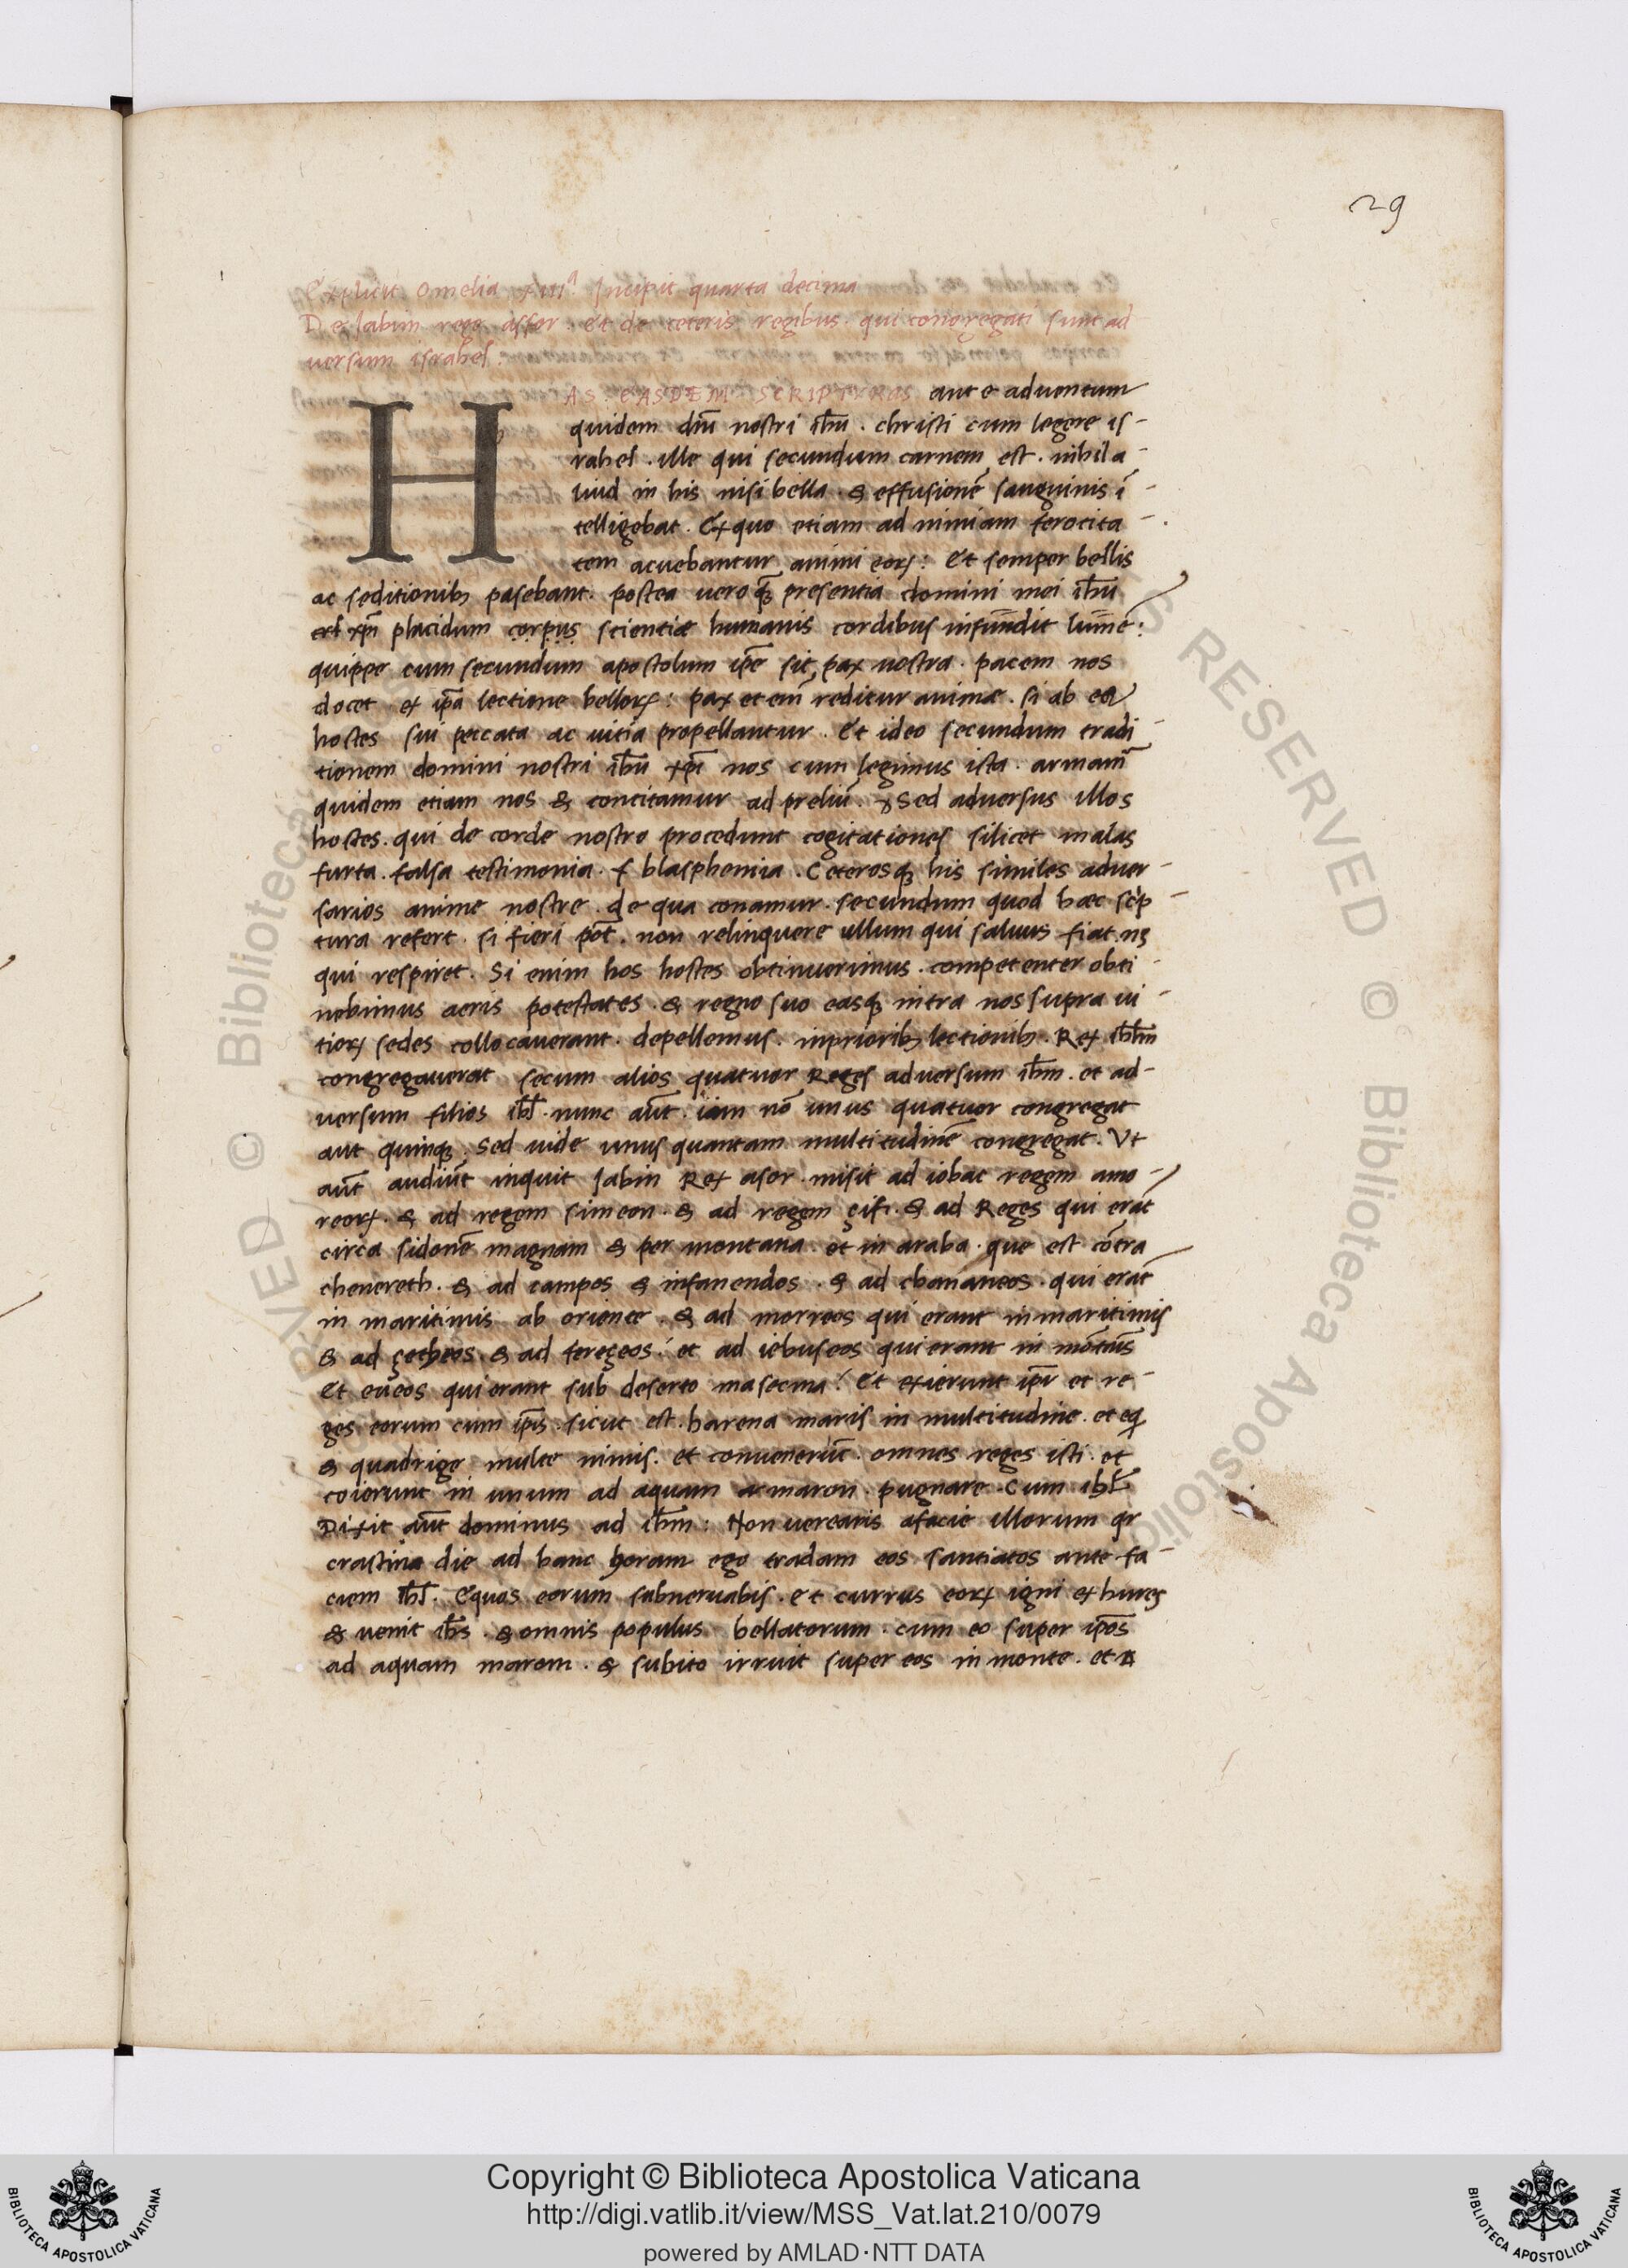 29
Explicit Omelia xiii^a Incipit quarta decima
De Jabim rege assor. Et de ceteris regibus. qui congregati sunt ad
versum israhel:
HAS. EASDEM. SCRIPTVRAS ante adventum
quidem dnī nostri ihū. christi cum legere is-
rahel. ille qui secundum carnem est. nihil a-
liud in his nisi bella. & effusionē sanguinis ī-
telligebat. Ex quo etiam ad nimiam ferocita-
tem acuebantur animi eorꝝ: Et semper bellis
ac seditionibꝫ pasebant. postea vero qꝫ presentia domini mei ihū
xp̄i placidum corpus scientiæ humanis cordibus infundit lumē:
quippe cum secundum apostolum ip̄e sit pax nostra. pacem nos
docet ex ip̄a lectione bellorꝝ: pax et enī reditur animæ. si ab ea
hostes sui peccata ac vitia propellantur. Et ideo secundum tradi-
tionem domini nostri ihū xp̄i nos cum legimus ista. armam̄
quidem etiam nos & concitamur ad preliū. Sed adversus illos
hostes. qui de corde nostro procedunt cogitationes silicet malas
furta. falsa testimonia. blasphemia. Ceterosqꝫ his similes adver-
sarios anime nostre. de qua conamur. secundum quod hæc scrip-
tura refert. si fieri pōt. non relinquere ullum qui salvus fiat. nꝫ
qui respiret. Si enim hos hostes obtinuerimus. competenter obti-
nebimus aeris potestates. & regno suo easqꝫ intra nos supra vi-
tiorꝝ sedes collocaverant. depellemus. in prioribꝫ lectionibꝫ. Rex
congregaverat secum alios quatuor Reges adversum ihm̄. et ad-
versum filios isrl̄. nunc aūt. iam nō unus quatuor congregat
aut quinqꝫ. Sed vide unus quantam multitudinē congregat. Vt
aūt audivit inquit Jabin Rex asor. misit ad iobac regem amo-
reorꝝ. & ad regem simeon. & ad regem çifi. & ad Reges qui erāt
circa sidonē magnam & per montana. et in araba. que est cōtra
chenereth. & ad campos & infanendos. & ad chananeos. qui erāt
in maritimis ab oriente. & ad morreos qui erant in maritimis
& ad getheos. & ad feregeos. et ad iebuseos qui erant in mōtanis
Et eueos qui erant sub deserto masecma. Et exierunt ip̄i et re-
ges eorum cum ip̄is. sicut est. harena maris in multitudine. et eq̄
& quadrige multe nimis. et convenerūt. omnes reges isti. et
coierunt in unum ad aquam marom. pugnare. Cum isrl̄
Dixit aūt dominus ad ihm̄: Non verearis afacie illorum qr
crastina die ad hanc horam ego tradam eos sautiatos ante fa-
ciem isrl̄. Equos eorum subnervabis. et currus eorꝝ igni exhures
& venit ihs̄. & omnis populus bellatorum. cum eo super ip̄os
ad aquam marom. & subito irruit super eos in monte. et
Copyright © Biblioteca Apostolica Vaticana
http://digi.vatlib.it/view/MSS_Vat.lat.210/0079
powered by AMLAD·NTT DATA